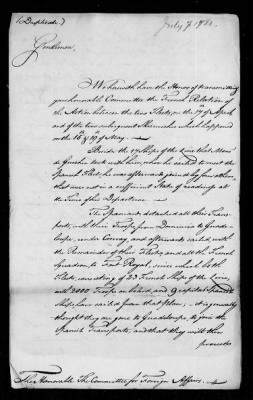 (Duplicate.)
July 7 1780.
Gentlemen,
We herewith have the Honor of transmitting
your honorable Committee the French Relation of
the Action between the two Fleets, on the 17th of April
and of the two subsequent Skirmishes which happened
on the 15th & 19th of May.
Beside the 17 Ships of the Line that Mons
de Guichen took with him, when he sailed to meet the
Spanish Fleet, he was afterwards joined by four others
that were not in a sufficient State of readiness at
the Time of his Departure.
The Spaniards detached all their Trans-
ports, with their Troops from Dominica to Guada-
loupe, under Convoy, and afterwards sailed, with
the Remainder of their Fleet, and all the French
Squadron to Fort Royal, since which both
Fleets, consisting of 23 French Ships of the Line,
with 2000 Troops on board, and 9 capital Spanish
Ships have sailed from that place; it is generally
thought they are gone to Guadaloupe, to join the
Spanish Transports, and that they will then
proceed
The Honorable The Committee for Foreign Affairs.